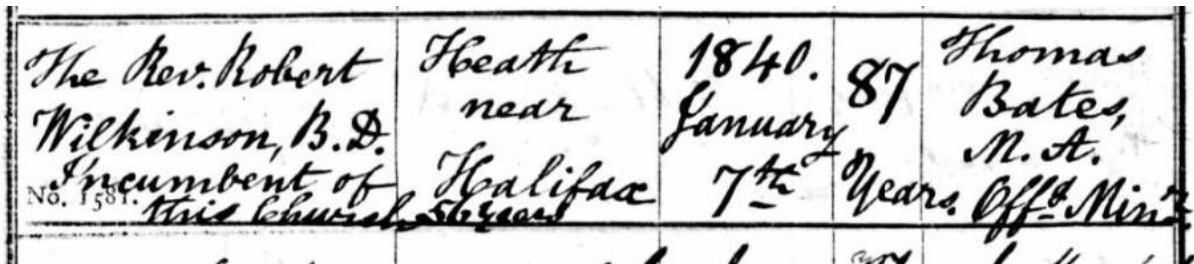 The Rev. Robert
Wilkinson, B.D.
Incumbent of
No. 1581. this Church 56 years
Heath
near
Halifax
1840.
January
7th
87
Years.
Thomas
Bates,
M. A.
Offg Minr.